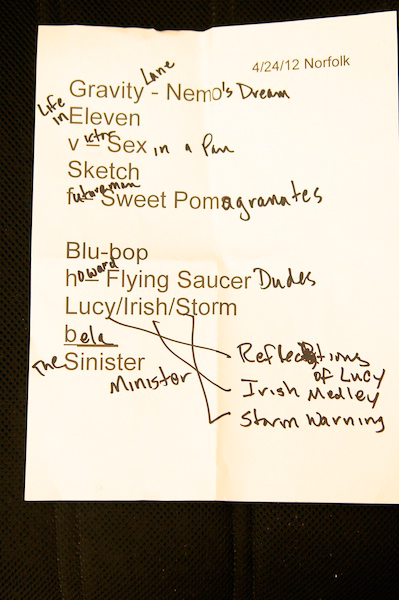 4/24/12 Norfolk
Gravity Lane - Nemo's Dream
Life in Eleven
victor - Sex in a Pan
Sketch
futureman - Sweet Pomagranates
Blu-bop
howard - Flying Saucer Dudes
Lucy/Irish/Storm
bela
The Sinister Minister
Reflections of Lucy
Irish Medley
Storm Warning